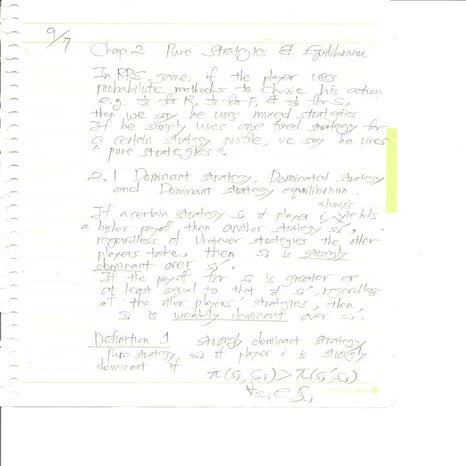 9/7
Chap 2 Pure Strategies & Equilibrium
In RPS game, if the player uses
probabilistic methods to choose his action
e.g. 1/3 for R, 1/3 for P, & 1/3 for S,
then we say he uses mixed strategies
If he simply uses one fixed strategy for
a certain strategy profile, we say he uses
"pure strategies".
2.1 Dominant strategy, Dominated strategy
and Dominant strategy equilibrium.
always
If a certain strategy si of player i yields
a higher payoff than another strategy si',
regardless of whatever strategies the other
players take, then si is strongly
dominant over si'.
If the payoff for si is greater or
at least equal to that of si', regardless
of the other players' strategies, then
si is weakly dominant over si'.
Definition 1 strongly dominant strategy
Pure strategy, si of player i is strongly
dominant if
π(si, s-i) > π(si', s-i)
∀s-i ∈ S-i